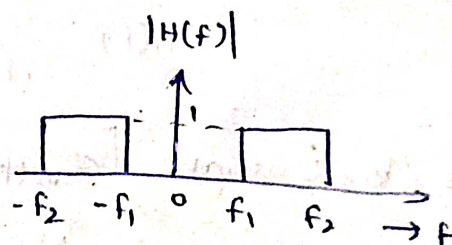 |H(f)|
1
-f₂ -f₁ 0 f₁ f₂
→ f